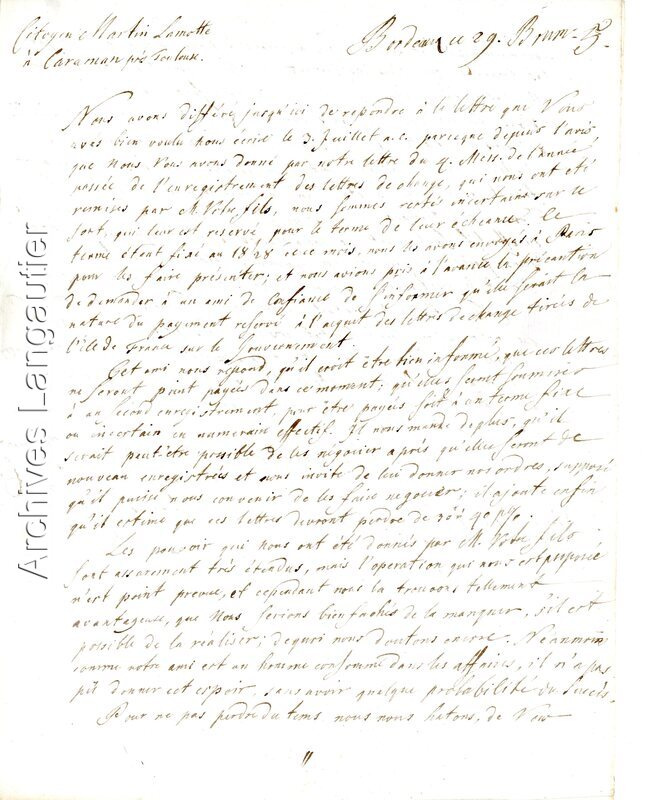 Citoyen Martin Lamotte
à Caraman près Toulouse.
Bordeaux le 29. Brum.
Nous avons différé jusqu'ici de repondre à le lettre que Vous
aves bien voulu nous écrire le 3. Juillet a.c. parceque depuis l'avis
que Nous Vous avons donné par notre lettre du 4. Mess. de l'année
passée de l'enregistrement des lettres de change, qui nous ont été
remises par M. Votre fils, nous sommes restés incertains sur le
sort, qui leur est reservé pour le terme de leur écheance. Ce
terme étant fixé au 18/28 de ce mois, nous les avons envoyés à Paris
pour les faire présenter; et nous avions pris à l'avance la précaution
de demander à un ami de Confiance de s'informer qu'elle seroit la
nature du payement reservé à l'aquit des lettres de change tirées de
l'ile de France sur le Gouvernement.
Cet ami nous repond, qu'il croit être bien informé, que ces lettres
ne seront point payées dans ce moment; qu'elles seront soumises
à un second enregistrement, pour être payées soit à un terme fixe
ou incertain en numeraire effectif. Il nous mande de plus, qu'il
serait peut-être possible de les négocier après qu'elles seront de
nouveau enregistrées et nous invite de lui donner nos ordres, supposé
qu'il puisse nous convenir de les faire negocier; il ajoute enfin
qu'il estime que ces lettres devront perdre de 30 à 40 p%.
Les pouvoir qui nous ont été donnés par M. Votre fils
sont assurement très étendus, mais l'operation qui nous est proposée
n'est point prevue, et cependant nous la trouvons tellement
avantageuse, que Nous serions bien fachés de la manquer, s'il est
possible de la réaliser; de quoi nous doutons encore. Neanmoins
comme notre ami est un homme consommé dans les affaires, il n'a pas
pû donner cet espoir, sans avoir quelque probabilité du Succès.
Pour ne pas perdre du tems nous nous hatons, de Vous
Archives Langautier